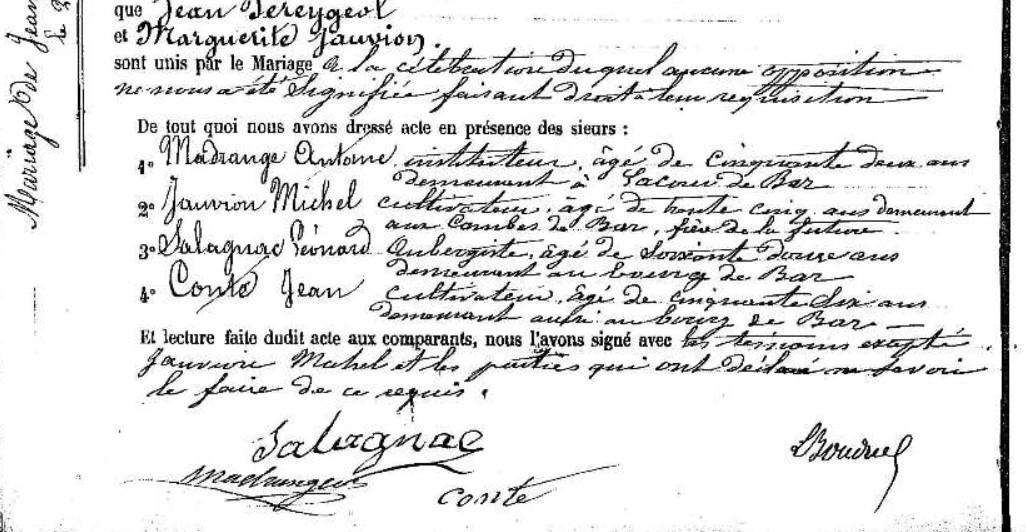 que Jean Tereygeol
et Marguerite Jauvion.
sont unis par le Mariage à la célébration duquel aucune opposition
ne nous a été signifiée faisant droit à leur requisition
De tout quoi nous avons dressé acte en présence des sieurs :
1º Madrange Antoine instituteur, âgé de cinquante deux ans
demeurant à Lacour de Bar
2º Jauvion Michel cultivateur, âgé de trente cinq ans demeurant
aux Combes de Bar, frère de la future.
3º Salagnac Léonard Aubergiste, âgé de soixante douze ans
demeurant au bourg de Bar
4º Conte Jean cultivateur, âgé de cinquante six ans
demeurant aussi au bourg de Bar —
Et lecture faite dudit acte aux comparants, nous l'avons signé avec les témoins excepté
Jauvion Michel et les parties qui ont déclaré ne savoir
le faire de ce requis.
Salagnac
Madrange
Conte
Mariage de Jean
le 2